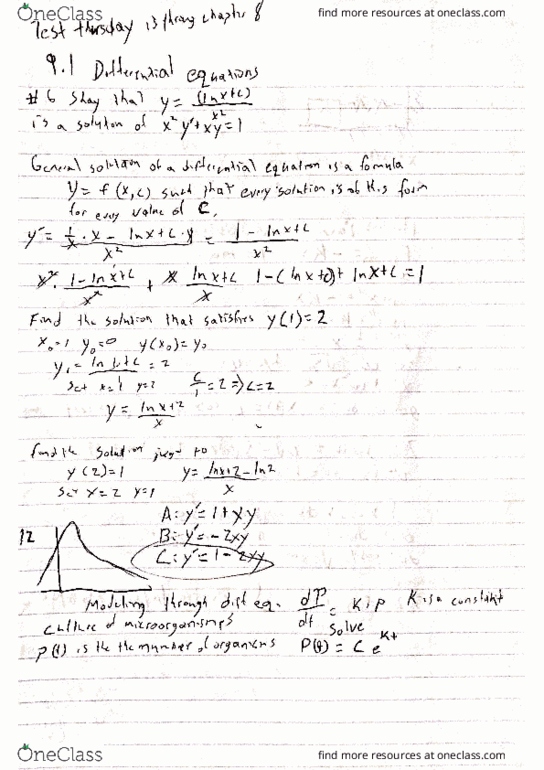 OneClass
find more resources at oneclass.com
Test thursday is throug chapter 8
9.1 Differential equations
#6 Show that y = (lnx+c) / x²
is a solution of x² y' + xy = 1
General solution of a differential equation is a formula
y = f(x,c) such that every solution is of this form
for every value of C.
y' = (1/x · x - lnx+c · y) / x² = (1 - lnx+c) / x²
x² · (1 - lnx+c) / x² + x (lnx+c) / x 1 - (lnx+c) + lnx+c = 1
Find the solution that satisfies y(1) = 2
x₀=1 y₀=0 y(x₀) = y₀
y₁ = (ln 1+c) / 1 = 2
Set x=1 y=2 c/1 = 2 => c=2
y = (lnx+2) / x
find the solution to
y(2)=1 y = (lnx+2-ln2) / x
Set x=2 y=1
A: y' = 1+xy
B: y' = -2xy
12 C: y' = 1-2xy
Modeling through diff eq. dP/dt = K P K is a constant
culture of microorganisms solve
P(t) is the the number of organisms P(t) = C e^Kt
OneClass
find more resources at oneclass.com